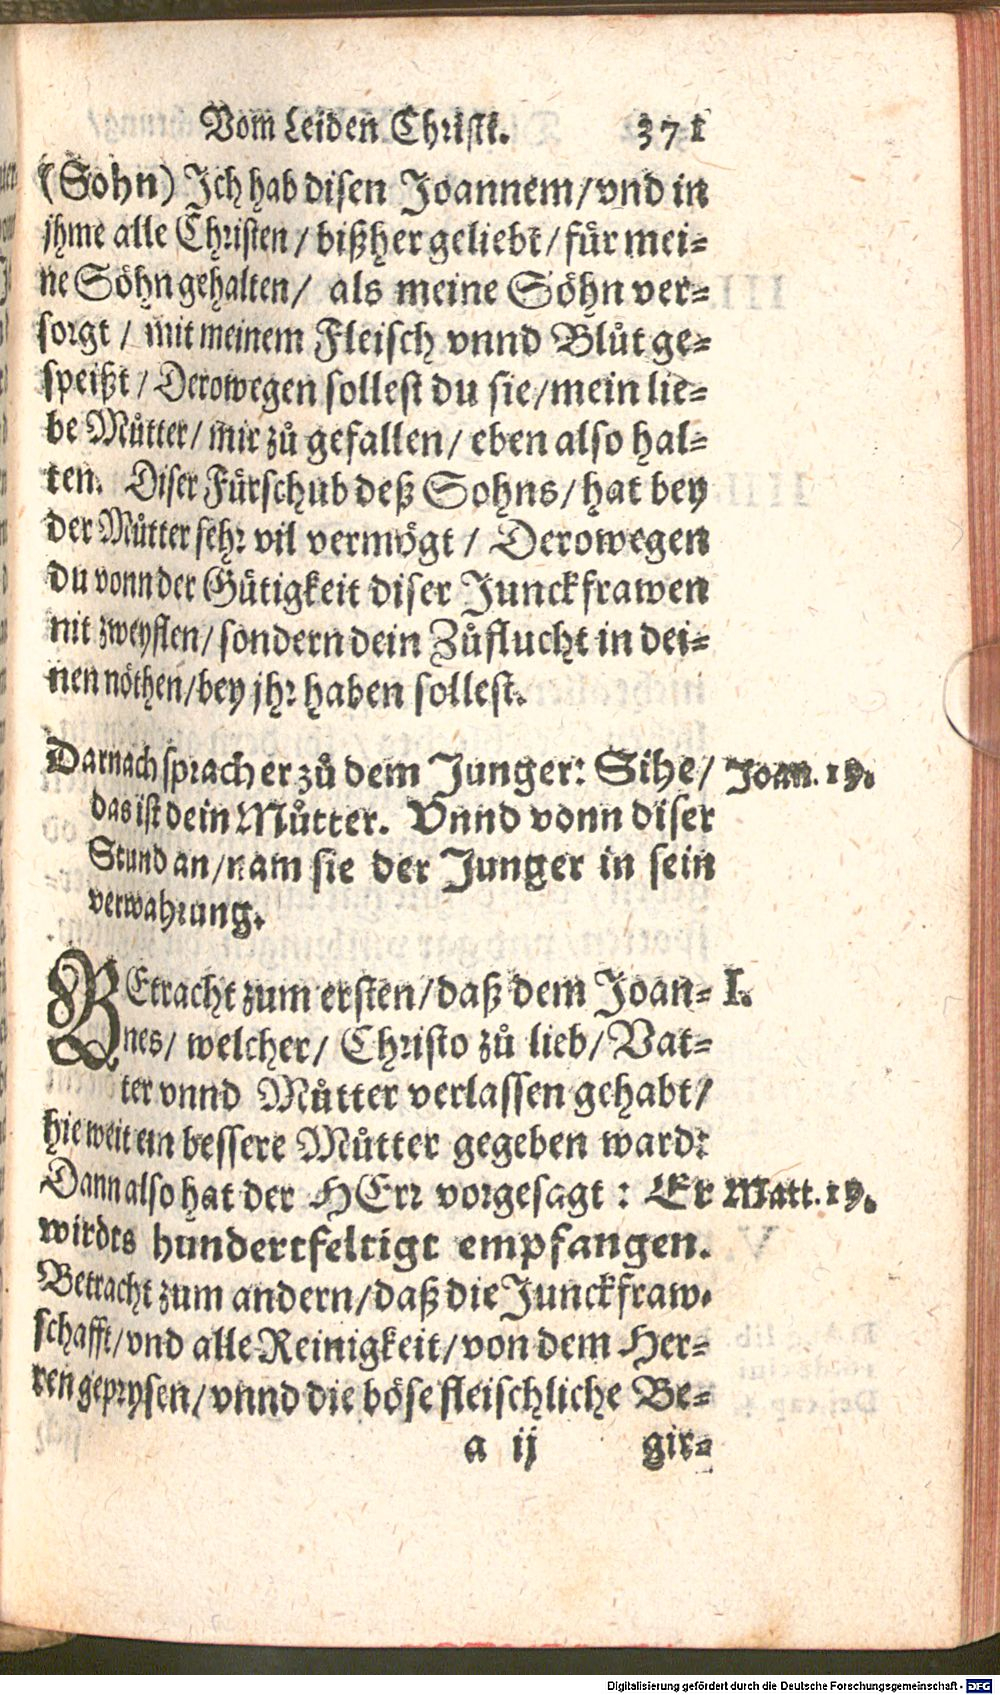 Vom Leiden Christi. 371
(Sohn) Jch hab disen Joannem / vnd in
jhme alle Christen / bißher geliebt / für mei-
ne Söhn gehalten / als meine Söhn ver-
sorgt / mit meinem Fleisch vnnd Blůt ge-
speißt / Derowegen sollest du sie / mein lie-
be Můtter / mir zů gefallen / eben also hal-
ten. Diser Fürschub deß Sohns / hat bey
der Můtter sehr vil vermögt / Derowegen
du vonn der Gütigkeit diser Junckfrawen
nit zweyflen / sondern dein Zůflucht in dei-
nen nöthen / bey jhr haben sollest.
Darnach sprach er zů dem Junger: Sihe / Joan. 19.
das ist dein Můtter. Vnnd vonn diser
Stund an / nam sie der Junger in sein
verwahrung.
BEtracht zum ersten / daß dem Joan- I.
nes / welcher / Christo zů lieb / Vat-
ter vnnd Můtter verlassen gehabt /
hie weit ein bessere Můtter gegeben ward:
Dann also hat der HErr vorgesagt : Er Matt. 19.
wirdts hundertfeltigt empfangen.
Betracht zum andern / daß die Junckfraw-
schafft / vnd alle Reinigkeit / von dem Her-
ren geprysen / vnnd die böse fleischliche Be-
a ij gir-
Digitalisierung gefördert durch die Deutsche Forschungsgemeinschaft - DFG